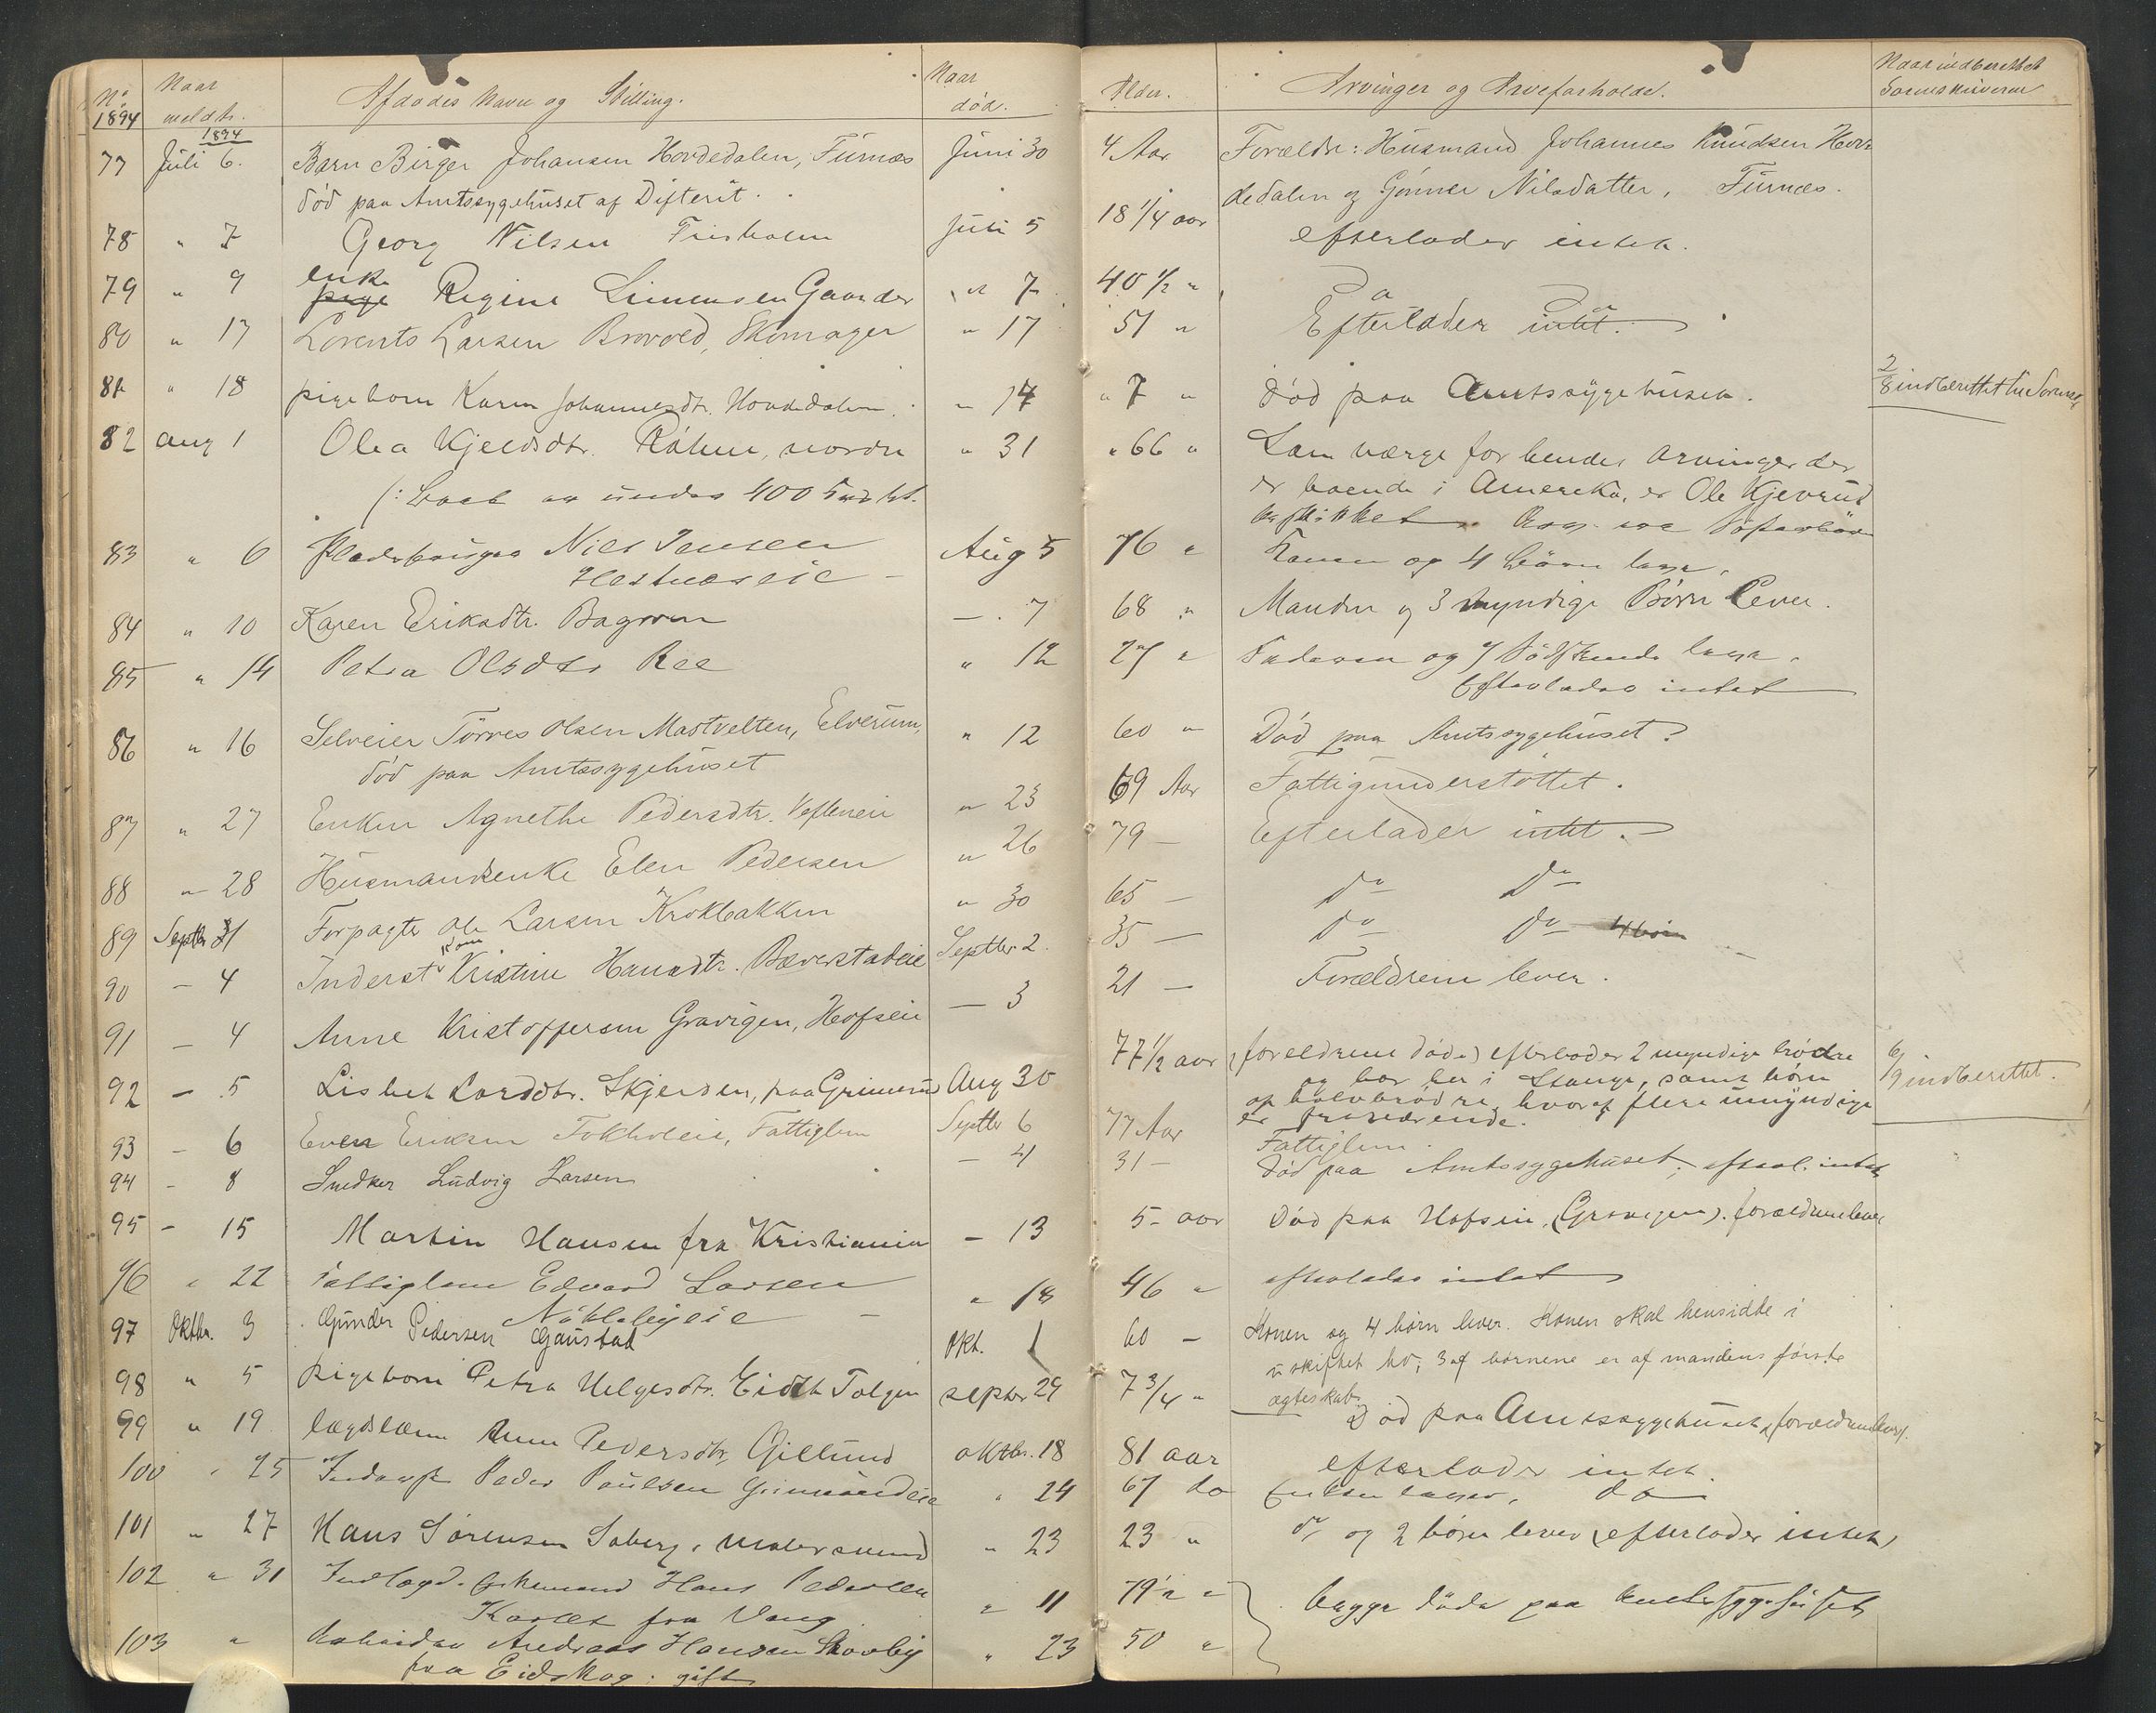 No 1894 Naar meldt. Afdødes Navn og Stilling. Naar død. Alder. Arvinger og Arveforholde. Naar indberettet Sorenskriveren
1894
77 Juli 6. Barn Birger Johansen Hovdedalen, Furnæs Juni 30 4 Aar Forældre: Husmand Johannes Knudsen Hov-
død paa Amtssygehuset af Difterit. dedalen og Gunner Nilsdatter, Furnæs.
78 " 7 Georg Nilsen Juli 5 18 1/4 aar efterlader intet.
79 " 9 enke pige Regine Simensen Gaarder " 7 40 1/2 " Do
80 " 17 Lorents Larsen Brovold, Skomager " 17 51 " Efterlader intet.
81 " 18 pigebarn Karen Johannesdtr. Hovdedalen. " 14 " 7 " død paa Amtssygehuset. 2/8 indberettet til Sorensk
82 aug 1 Olea Kjeldsdtr. nordre " 31 " 66 " Som værge for hendes arvinger der
(: Boet er under 400 er boende i Amerika, er Ole Kjevrud
beskikket.
83 " 6 Nils Jensen Aug 5 76 " Konen og 4 børn lever.
Hestnæseie
84 " 10 Karen Eriksdtr. Bagroen — . 7 68 " Manden og 3 myndige Børn lever.
85 " 14 Petra Olsdtr Ree " 12 27 " Faderen og 7 Sødskende lever.
Efterlader intet
86 " 16 Selveier Törres Olsen Mastvelten, Elverum, " 12 60 " Død paa Amtssygehuset?
død paa Amtssygehuset
87 " 27 Enken Agnethe Pedersdtr. " 23 69 Aar Fattigunderstøttet.
88 " 28 Husmandsenke Elen Pedersen " 26 79 — Efterlader intet.
89 Septbr 1 Forpagter Ole Larsen Krokbakken " 30 65 — do do
90 — 4 Inderst Kristine Hansdtr. Bæverstadeie Septbr 2. 35 — do do 4 börn
91 — 4 Anne Kristoffersen Gravigen, Hofseie — 3 21 — Forældrene lever.
92 — 5 Lisbet Skjerden, paa Grimerud Aug 30 77 1/2 aar (foreldrene døde) efterlader 2 myndige brødre 6/9 indberettet.
og bor her i Stange, samt børn
af halvbrødre, hvoraf flere umyndige
er fraværende.
93 — 6 Even Eriksen Fokholeie, Fattiglem Septbr 6 77 Aar Fattiglem.
94 — 8 Snedker Ludvig Larsen — 4 31 — død paa Amtssygehuset; efterl. intet
95 — 15 Martin Hansen fra Kristiania — 13 5 — aar død paa Hofseie, (Gravigen). forældrene lever
96 " 22 Fattiglem Edvard Larsen " 18 46 " efterlader intet
Nöklebyeie
97 Oktbr. 3 Gunder Pedersen Gaustad Okt. 1 60 — Konen og 4 børn lever. Konen skal hensidde i
uskiftet bo; 3 af børnene er af mandens første
ægteskab.
98 " 5 pigebarn Petra Helgesdtr. Eidet Tolgen septbr 29 7 3/4 " Død paa Amtssygehuset,
99 " 19 Pedersdtr. Gillund oktbr. 18 81 aar efterlader intet.
100 " 25 Inderst Peder Paulsen Grimerudeie " 24 67 do Enken lever, do
101 " 27 Hans Sørensen Soberg, malersvend " 23 23 " do og 2 børn lever (efterlader intet)
102 " 31 Hans Pedersen " 11 79 1/2 " begge døde paa Amtssygehuset
fra Vang
103 " Arbeider Andreas Hansen Skovby " 23 50 "
fra Eidskog. gift